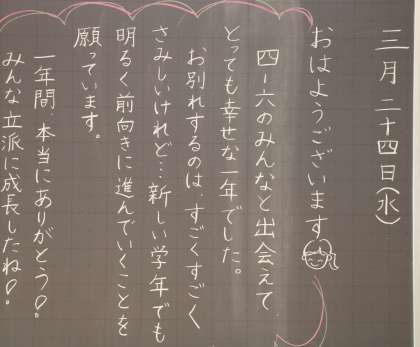 三月二十四日(水)
おはようございます
四-六のみんなと出会えて
とっても幸せな一年でした。
お別れするのは、すごくすごく
さみしいけれど…新しい学年でも
明るく前向きに進んでいくことを
願っています。
一年間、本当にありがとう!
みんな立派に成長したね!!